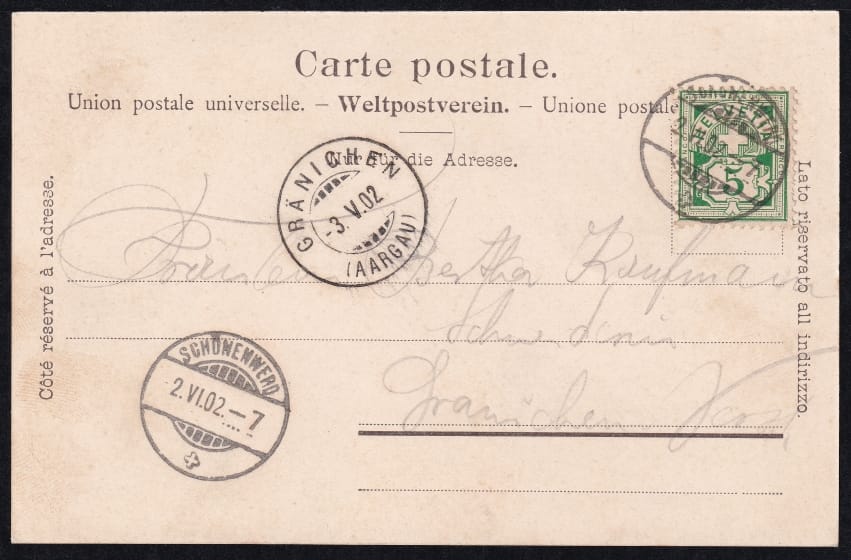 Carte postale.
Union postale universelle. — Weltpostverein. — Unione postale
Nur für die Adresse.
Côté réservé à l'adresse.
Lato riservato all indirizzo.
HELVETIA
5
GRÄNICHEN
-3.V.02
(AARGAU)
Fräulein Bertha Kaufmann
Gränichen
SCHÖNENWERD
2.VI.02.–7